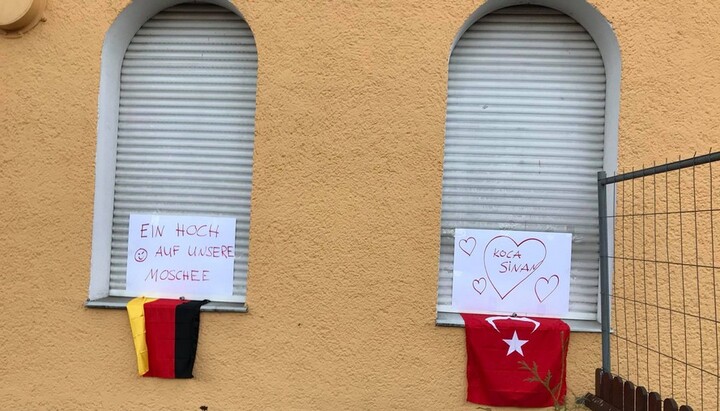 EIN HOCH
AUF UNSERE
MOSCHEE
KOCA
SINAN